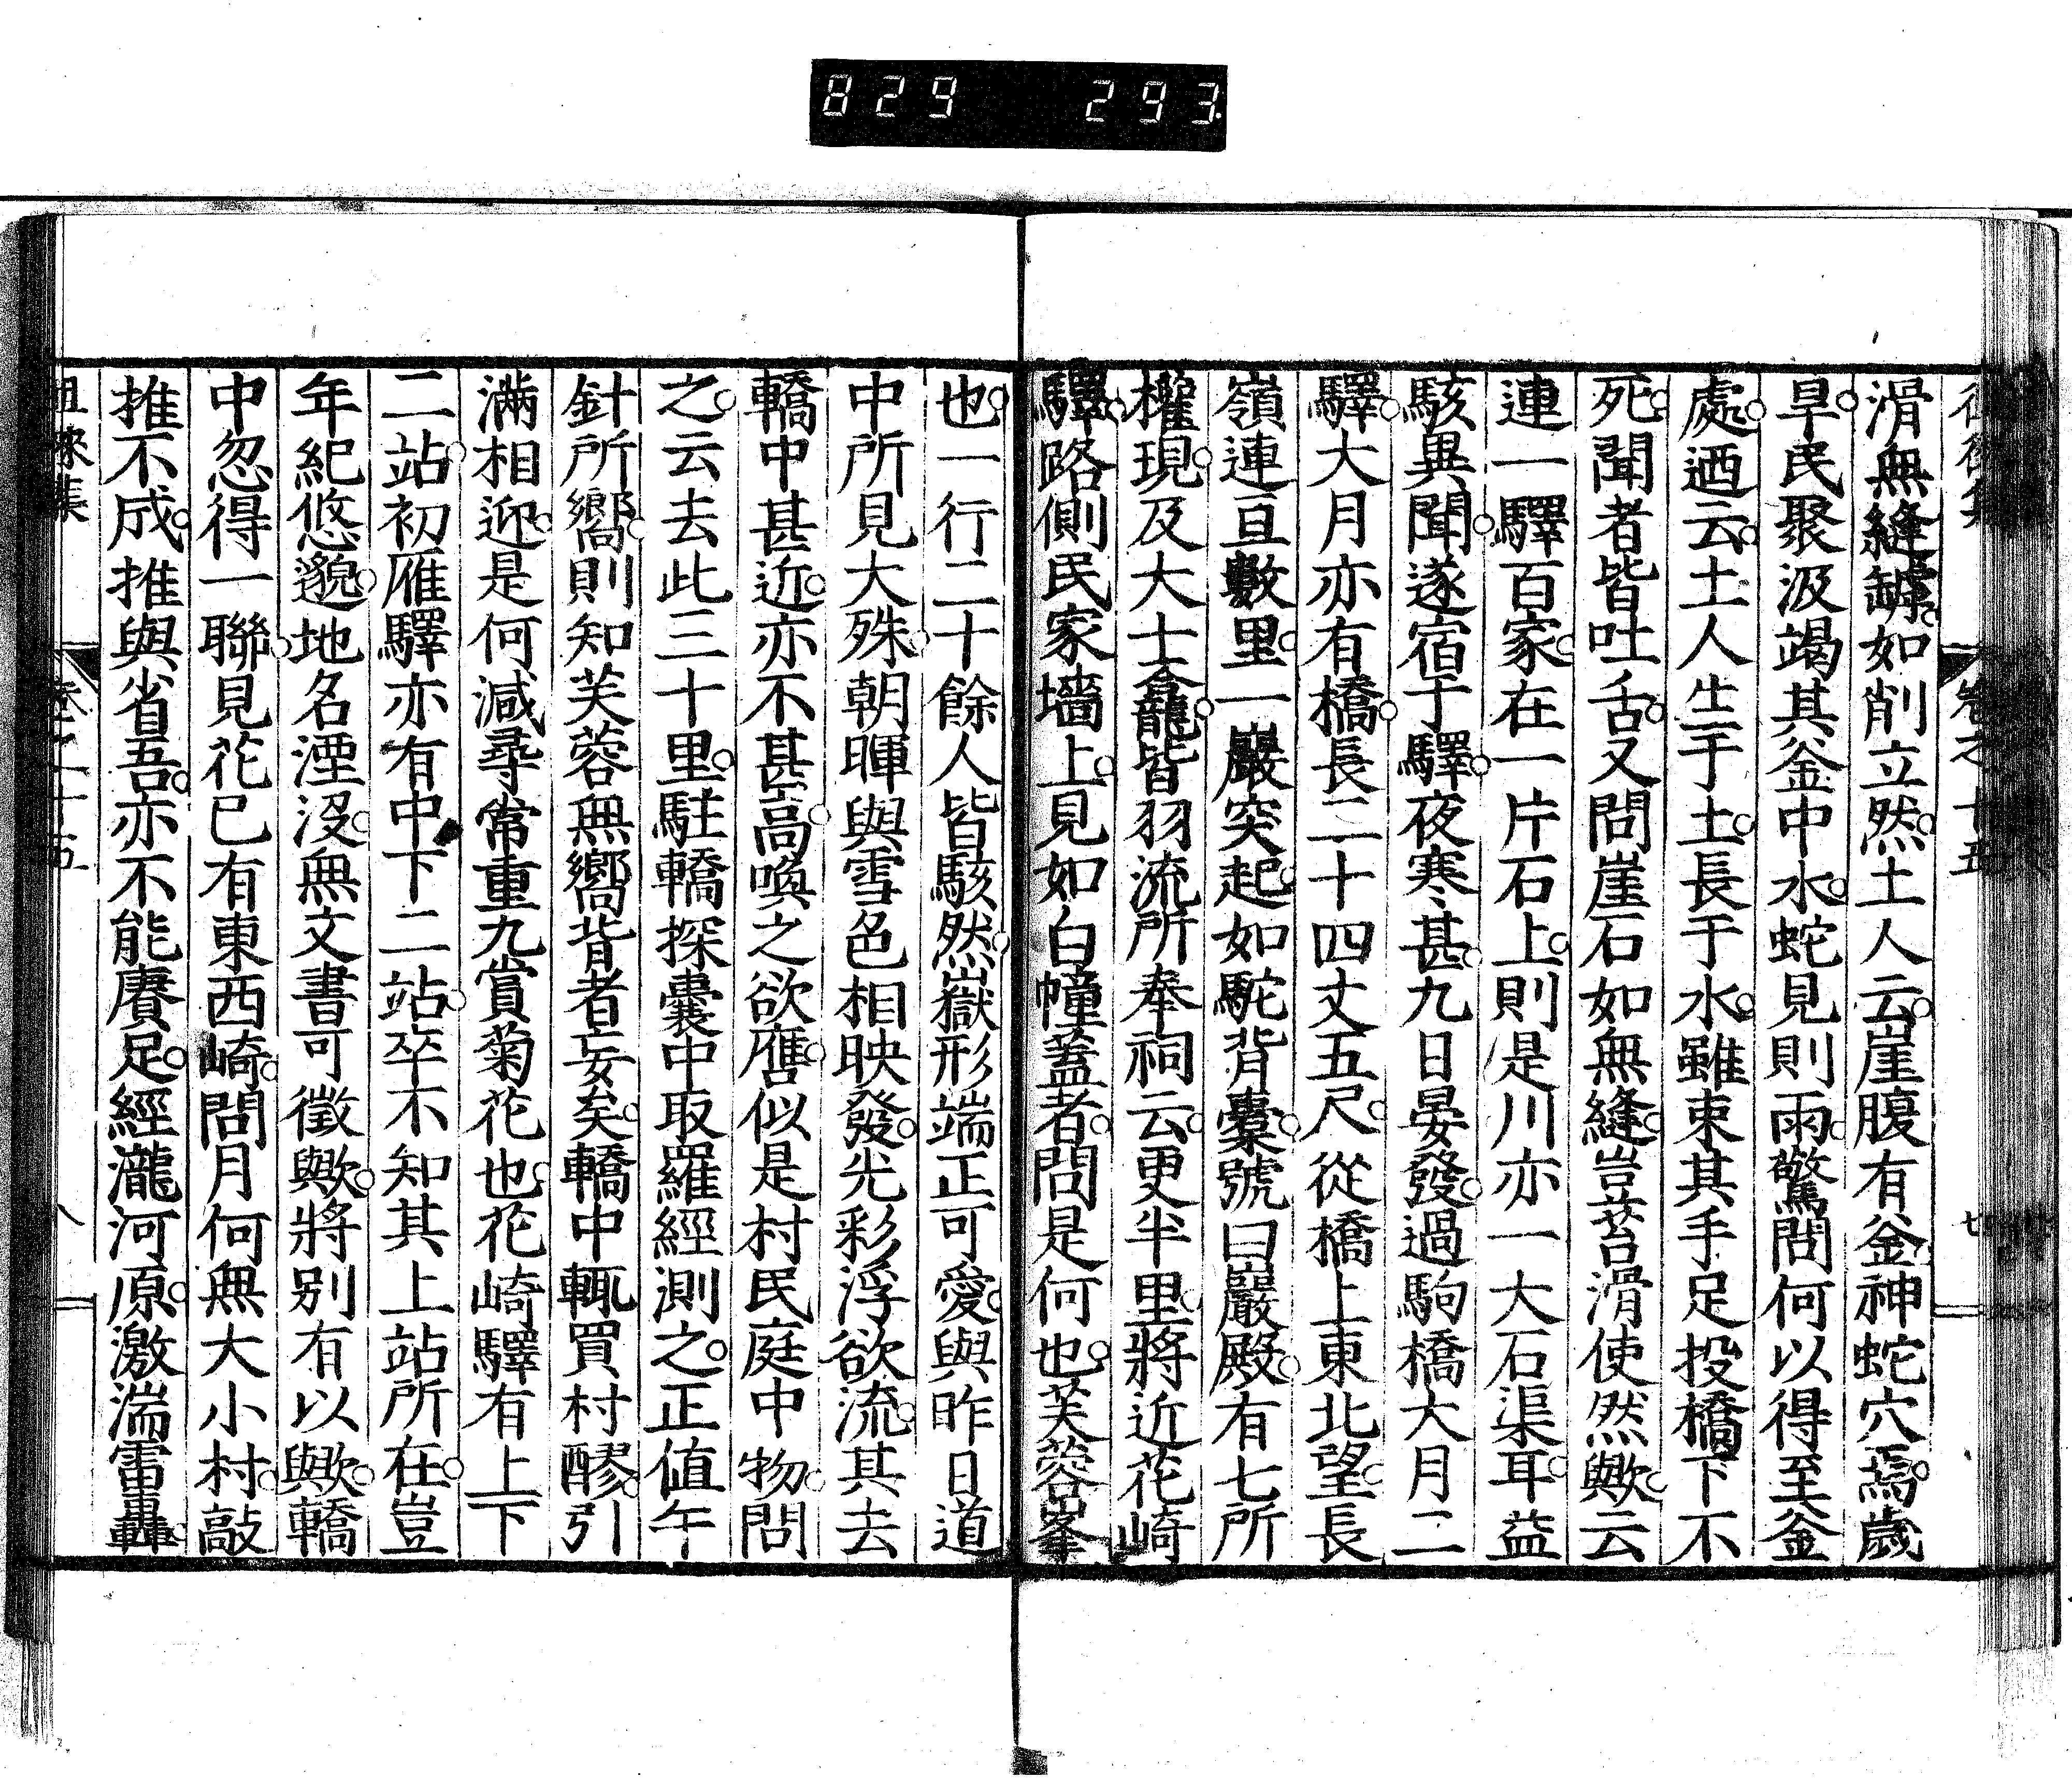 829 293
滑無縫罅如削立然土人云崖腹有釜神蛇穴焉歲
旱民聚汲竭其釜中水蛇見則雨驚問何以得至釜
處迺云土人生于土長于水雖束其手足投橋下不
死聞者皆吐舌又問崖石如無縫豈苔滑使然歟云
連一驛百家在一片石上則是川亦一大石渠耳益
駭異聞遂宿于驛夜寒甚九日晏發過駒橋大月二
驛大月亦有橋長二十四丈五尺從橋上東北望長
嶺連亘數里一巖突起如駝背囊號曰巖殿有七所
權現及大士龕皆羽流所奉祠云更半里將近花崎
驛路側民家墻上見如白幢蓋者問是何也芙蓉峯
也一行二十餘人皆駭然嶽形端正可愛與昨日道
中所見大殊朝暉與雪色相映發光彩浮欲流其去
轎中甚近亦不甚高喚之欲譍似是村民庭中物問
之云去此三十里駐轎探囊中取羅經測之正值午
針所嚮則知芙蓉無嚮背者妄矣轎中輒買村醪引
滿相迎是何減尋常重九賞菊花也花崎驛有上下
二站初雁驛亦有中下二站卒不知其上站所在豈
年紀悠邈地名湮沒無文書可徵歟將別有以歟轎
中忽得一聯見花已有東西崎問月何無大小村敲
推不成推與省吾亦不能賡足經瀧河原激湍雷轟
徂徠集 卷之十五 八